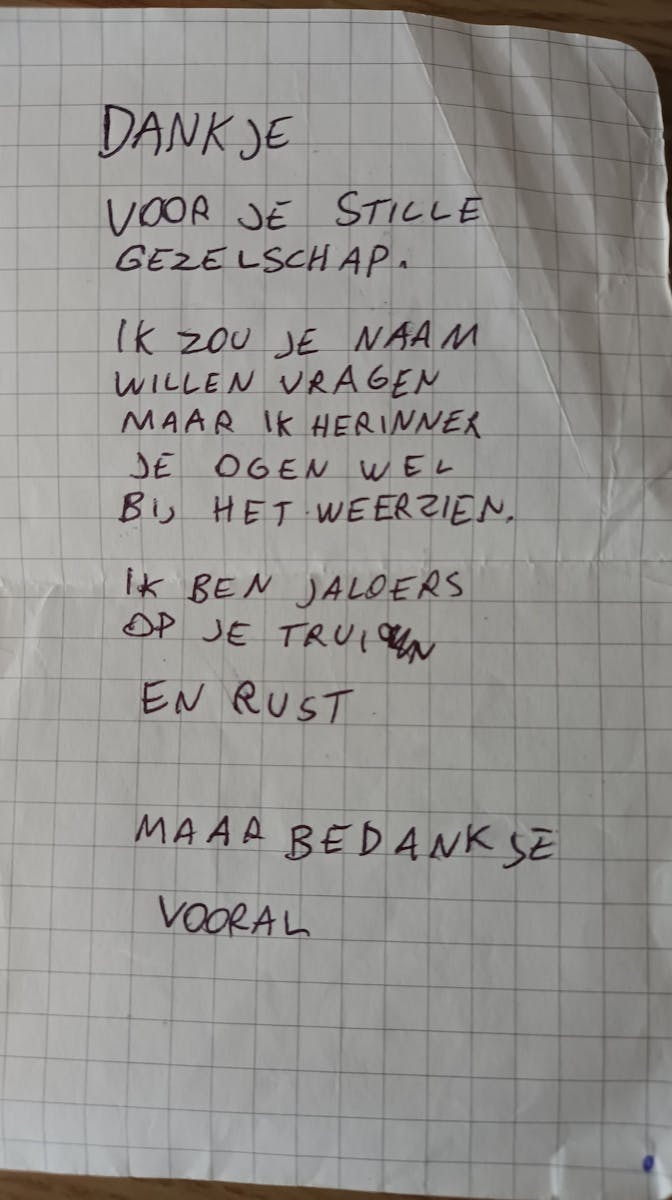 DANKJE
VOOR JE STILLE
GEZELSCHAP.
IK ZOU JE NAAM
WILLEN VRAGEN
MAAR IK HERINNER
JE OGEN WEL
BIJ HET WEERZIEN.
IK BEN JALOERS
OP JE TRUI
EN RUST
MAAR BEDANKJE
VOORAL